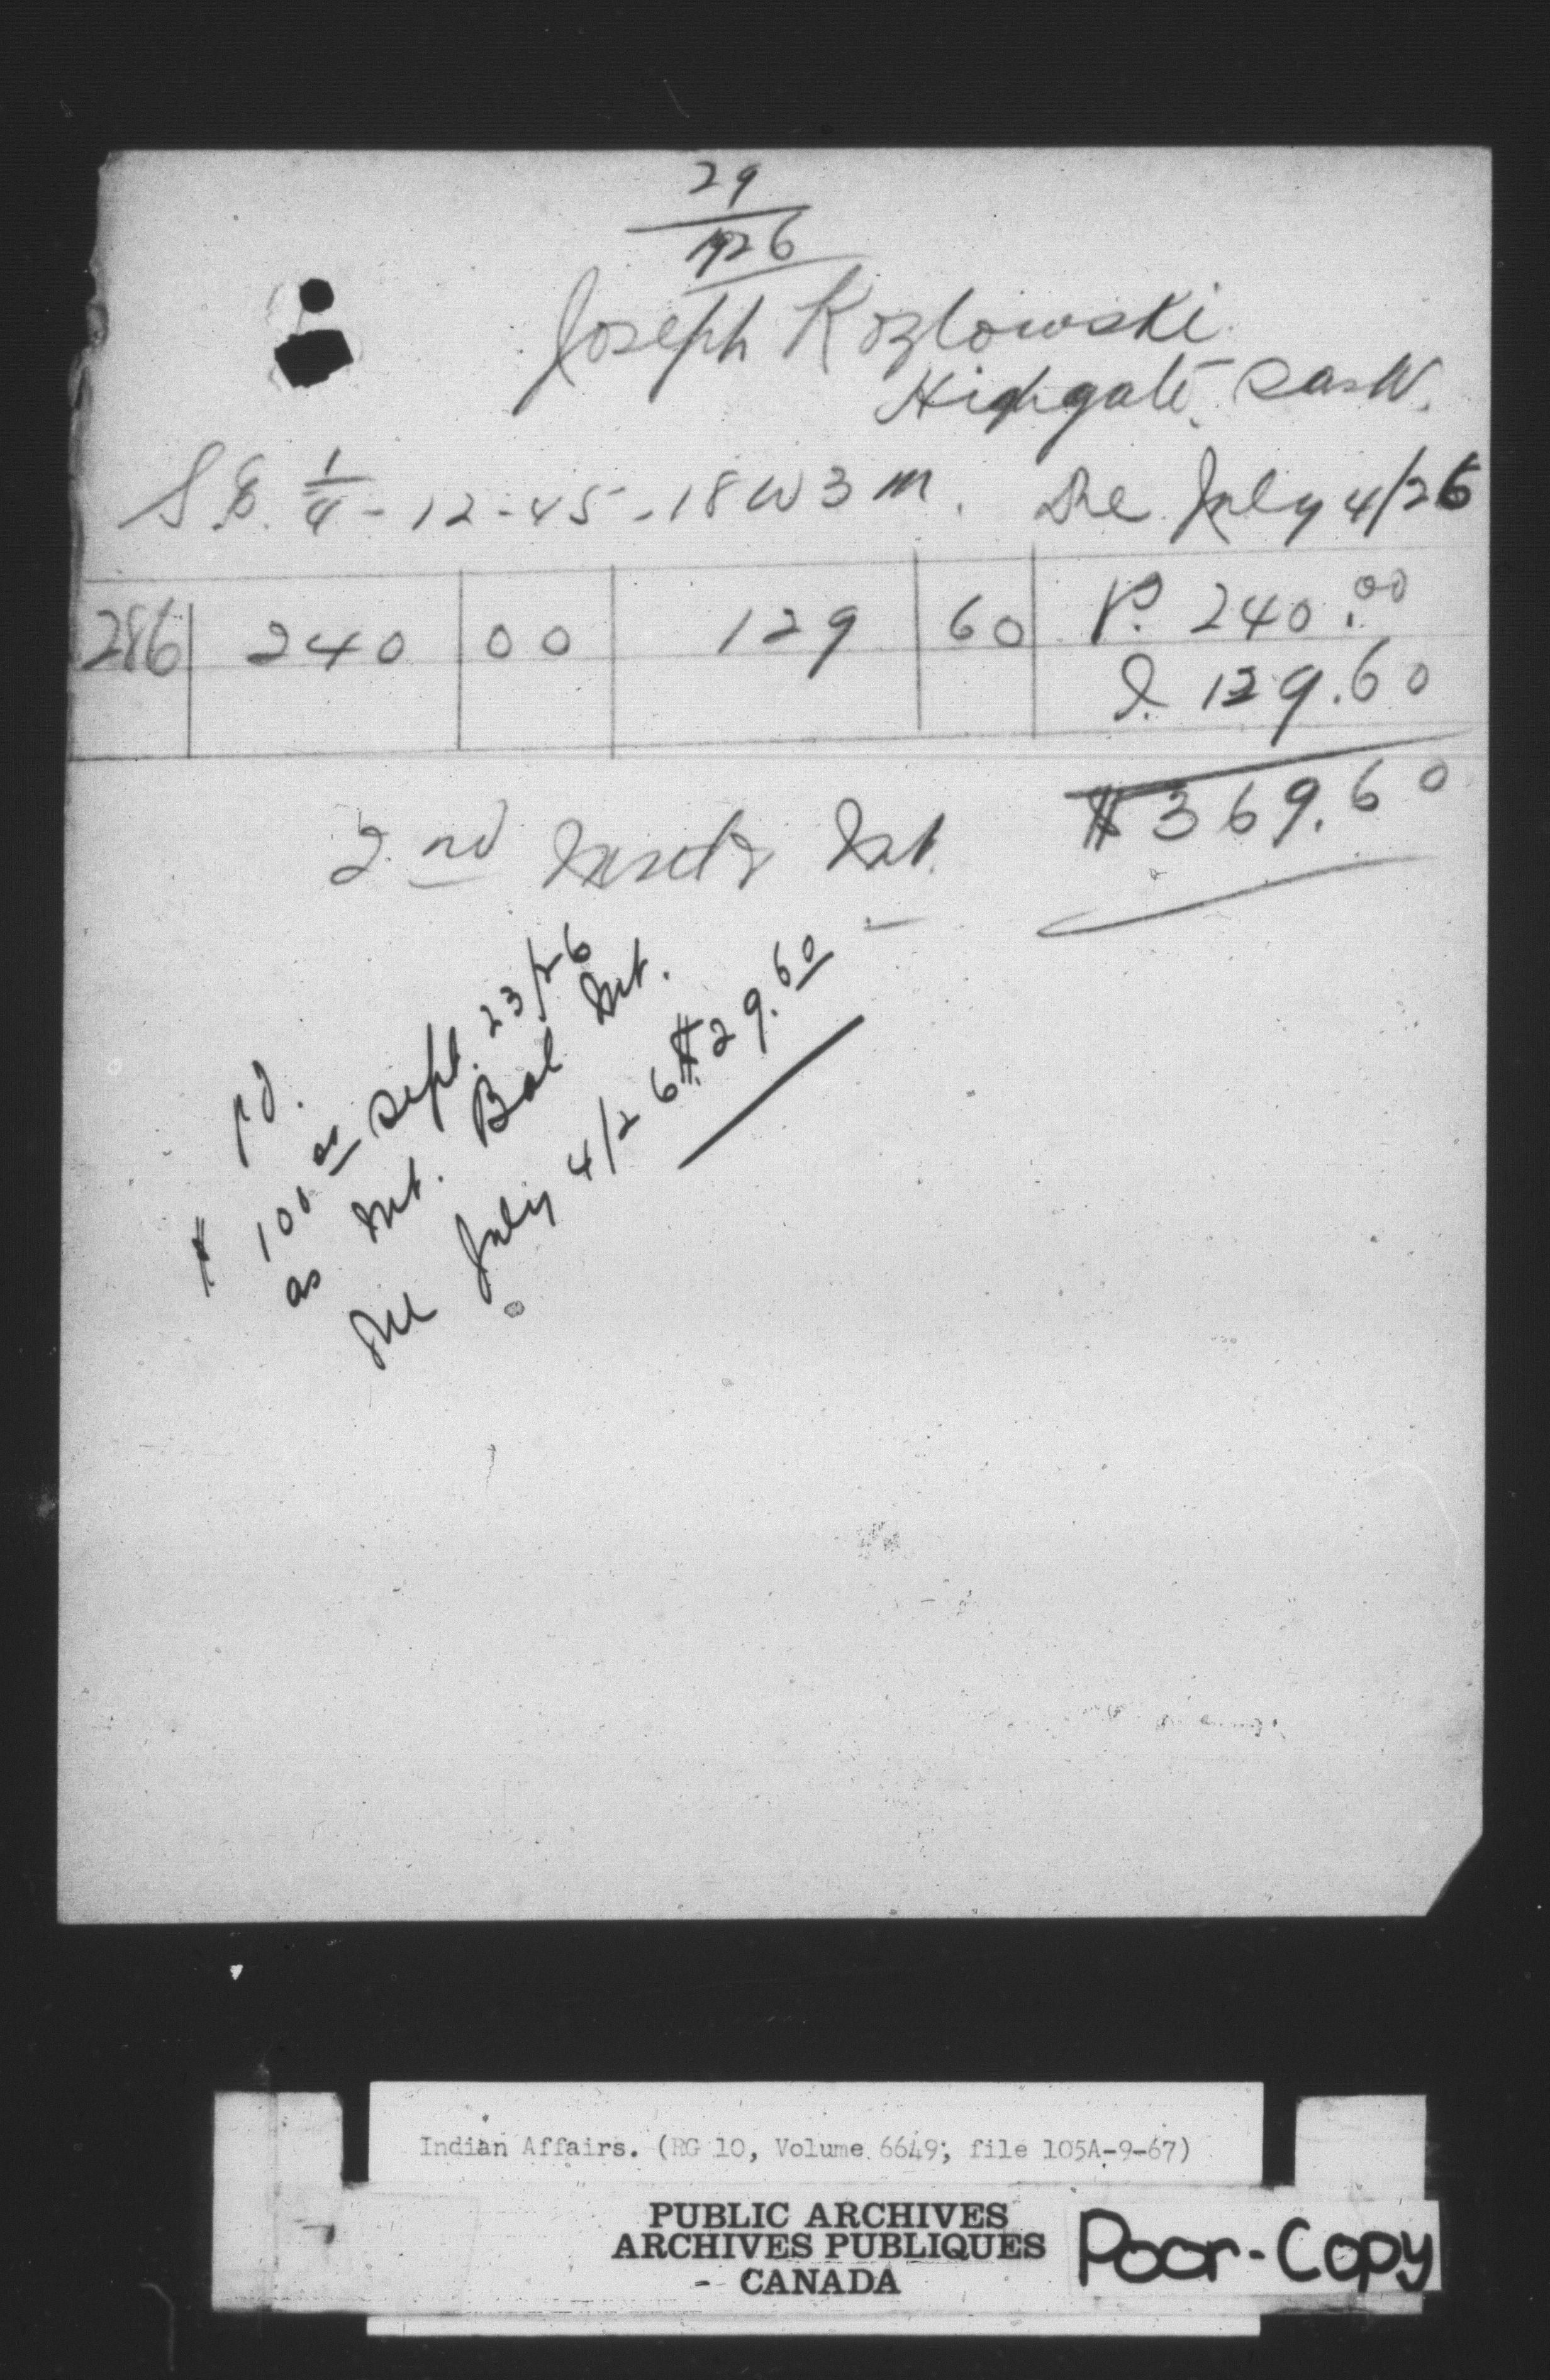 29
1926
Joseph Kozlowski
Highgate, Sask.
S.E. 1/4 - 12 - 45 - 18 W 3 M. Due July 4/26
286 240 00 129 60 P. 240.00
I. 129.60
$369.60
2nd Int.
pd.
$100.00 Sept. 23/26
as Int. Bal Int.
Due July 4/26 $29.60
Indian Affairs. (RG 10, Volume 6649, file 105A-9-67)
PUBLIC ARCHIVES
ARCHIVES PUBLIQUES
- CANADA
Poor-Copy